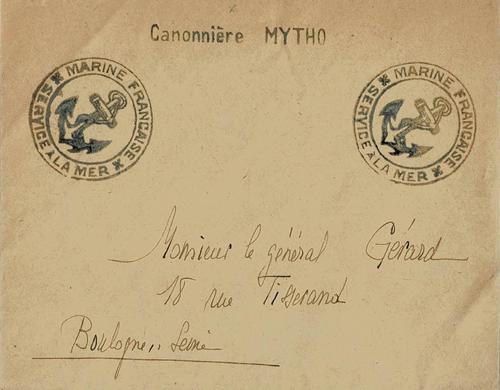 Canonnière MYTHO
MARINE FRANÇAISE
SERVICE À LA MER
MARINE FRANÇAISE
SERVICE À LA MER
Monsieur le général Gérard
18 rue Tisserand
Boulogne .. Seine